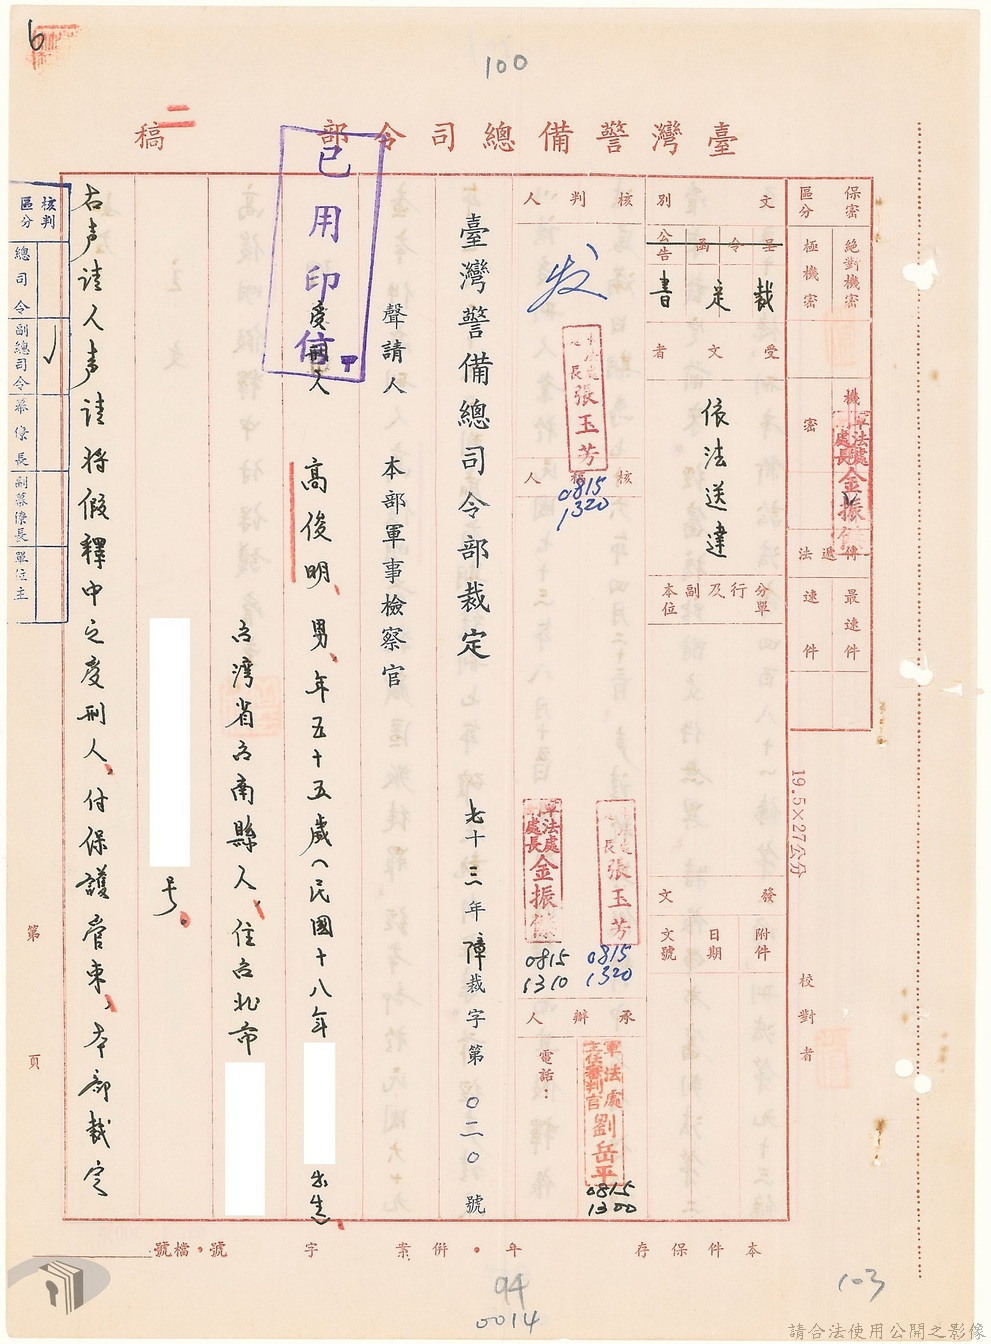 6
100
二
臺灣警備總司令部 稿
保密區分
絕對機密
極機密
機密
密
軍法處處長金振
傳遞法
最速件
速件
文別
呈
令
函
公告
裁定書
受文者
依法送達
分行及副本
單位
發文
附件
日期
文號
核判人
发
張玉芳
核稿人
0815
1320
軍法處處長金振
0815
1310
張玉芳
0815
1320
承辦人
電話：
軍法處主任審判官劉岳平
0815
1300
臺灣警備總司令部裁定
七十三年障裁字第〇二〇號
聲請人 本部軍事檢察官
受刑人 高俊明、男、年五十五歲（民國十八年
出生、
台灣省台南縣人、住台北市
号。
右声請人声請將假釋中之受刑人、付保護管束、本部裁定
已用印
信
核判區分
總司令
副總司令
幕僚長
副幕僚長
單位主
19.5×27公分
校對者
第
頁
本件保存 年。併案 字 號。檔號
94
0014
103
請合法使用公開之影像